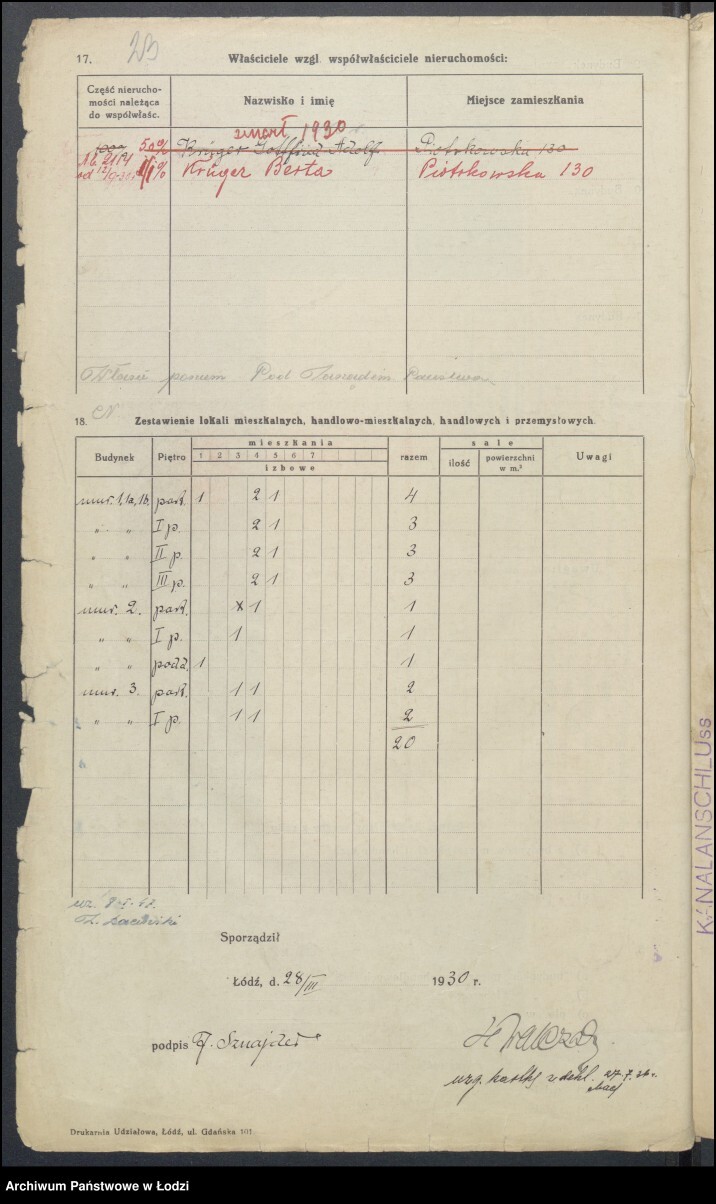 17. Właściciele wzgl. współwłaściciele nieruchomości:
Część nierucho-
mości należąca
do współwłaśc.
Nazwisko i imię
Miejsce zamieszkania
zmarł 1930
50% Krüger Gottfried Adolf. Piotrkowska 130
od 12/9 30r Krüger Berta Piotrkowska 130
Pod Zarządem Państwa
18. Zestawienie lokali mieszkalnych, handlowo-mieszkalnych, handlowych i przemysłowych.
Budynek Piętro mieszkania razem sale Uwagi
1 2 3 4 5 6 7
izbowe
ilość powierzchni
w m.²
mur. 1, 1a, 1b. part. 1 2 1 4
" " I p. 2 1 3
" " II p. 2 1 3
" " III p. 2 1 3
mur. 2. part. x 1 1
" " I p. 1 1
" " podd. 1 1
mur. 3. part. 1 1 2
" " I p. 1 1 2
20
KANALANSCHLUss
Sporządził
Łódź, d. 28/III 1930 r.
podpis Sznajder
Drukarnia Udziałowa, Łódź, ul. Gdańska 101
Archiwum Państwowe w Łodzi